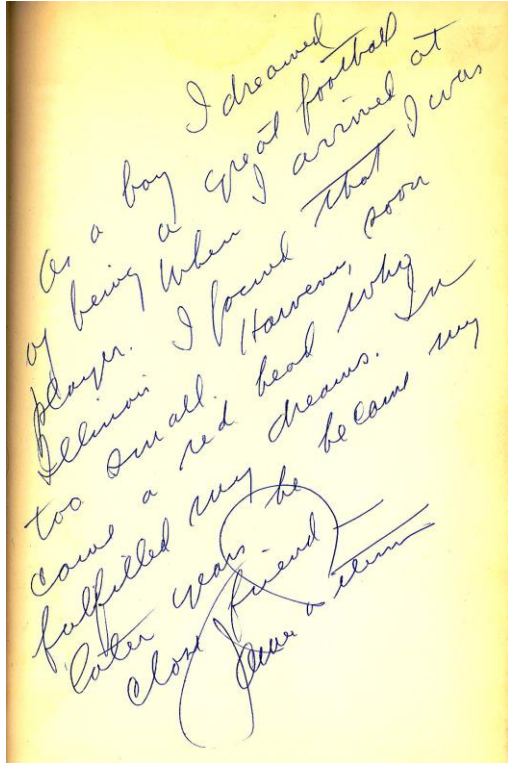 As a boy I dreamed
of being a great football
player. When I arrived at
Illinois I found that I was
too small. However, soon
came a red head who
fulfilled my dreams. In
later years he became my
close friend —